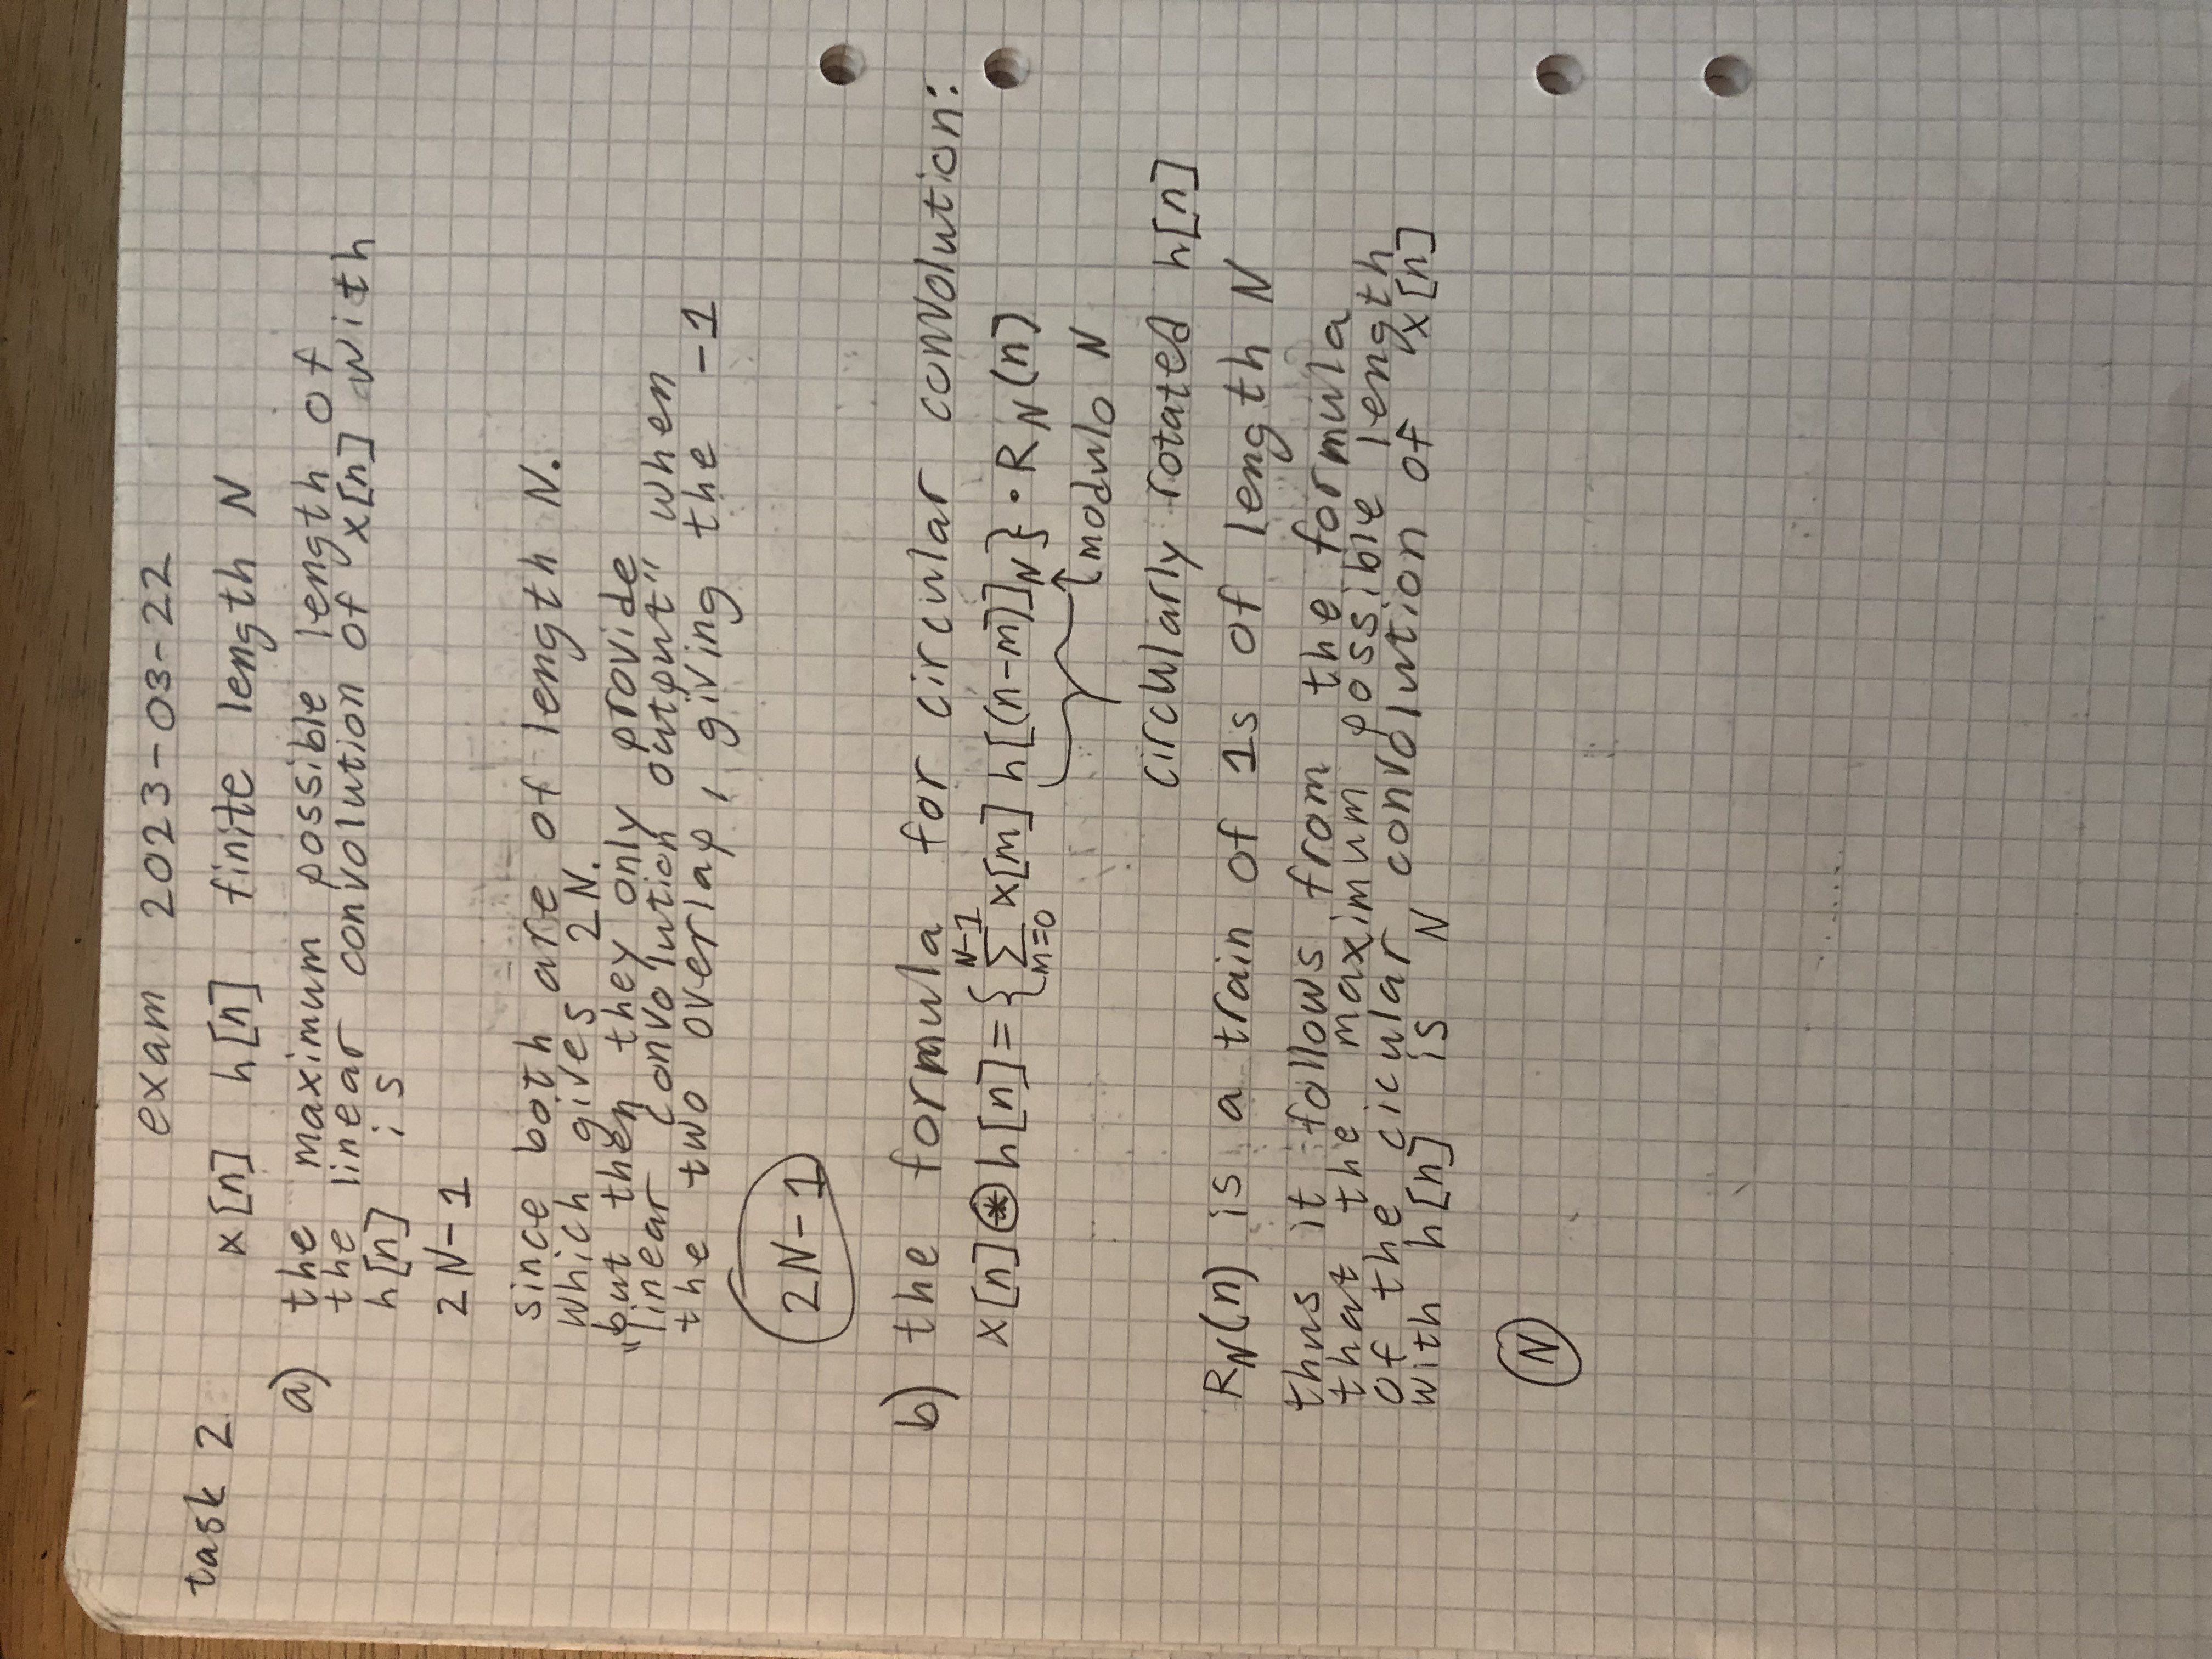 exam 2023-03-22
task 2
x[n] h[n] finite length N
a) the maximum possible length of
the linear convolution of x[n] with
h[n] is
2N-1
since both are of length N.
which gives 2N.
but then they only provide
"linear convolution output" when
the two overlap, giving the -1
2N-1
b) the formula for circular convolution:
x[n] ⊛ h[n] = { Σ_{m=0}^{N-1} x[m] h[(n-m)]_N } · R_N(n)
↑ modulo N
circularly rotated h[n]
R_N(n) is a train of 1s of length N
thus it follows from the formula
that the maximum possible length
of the cicular convolution of x[n]
with h[n] is N
N